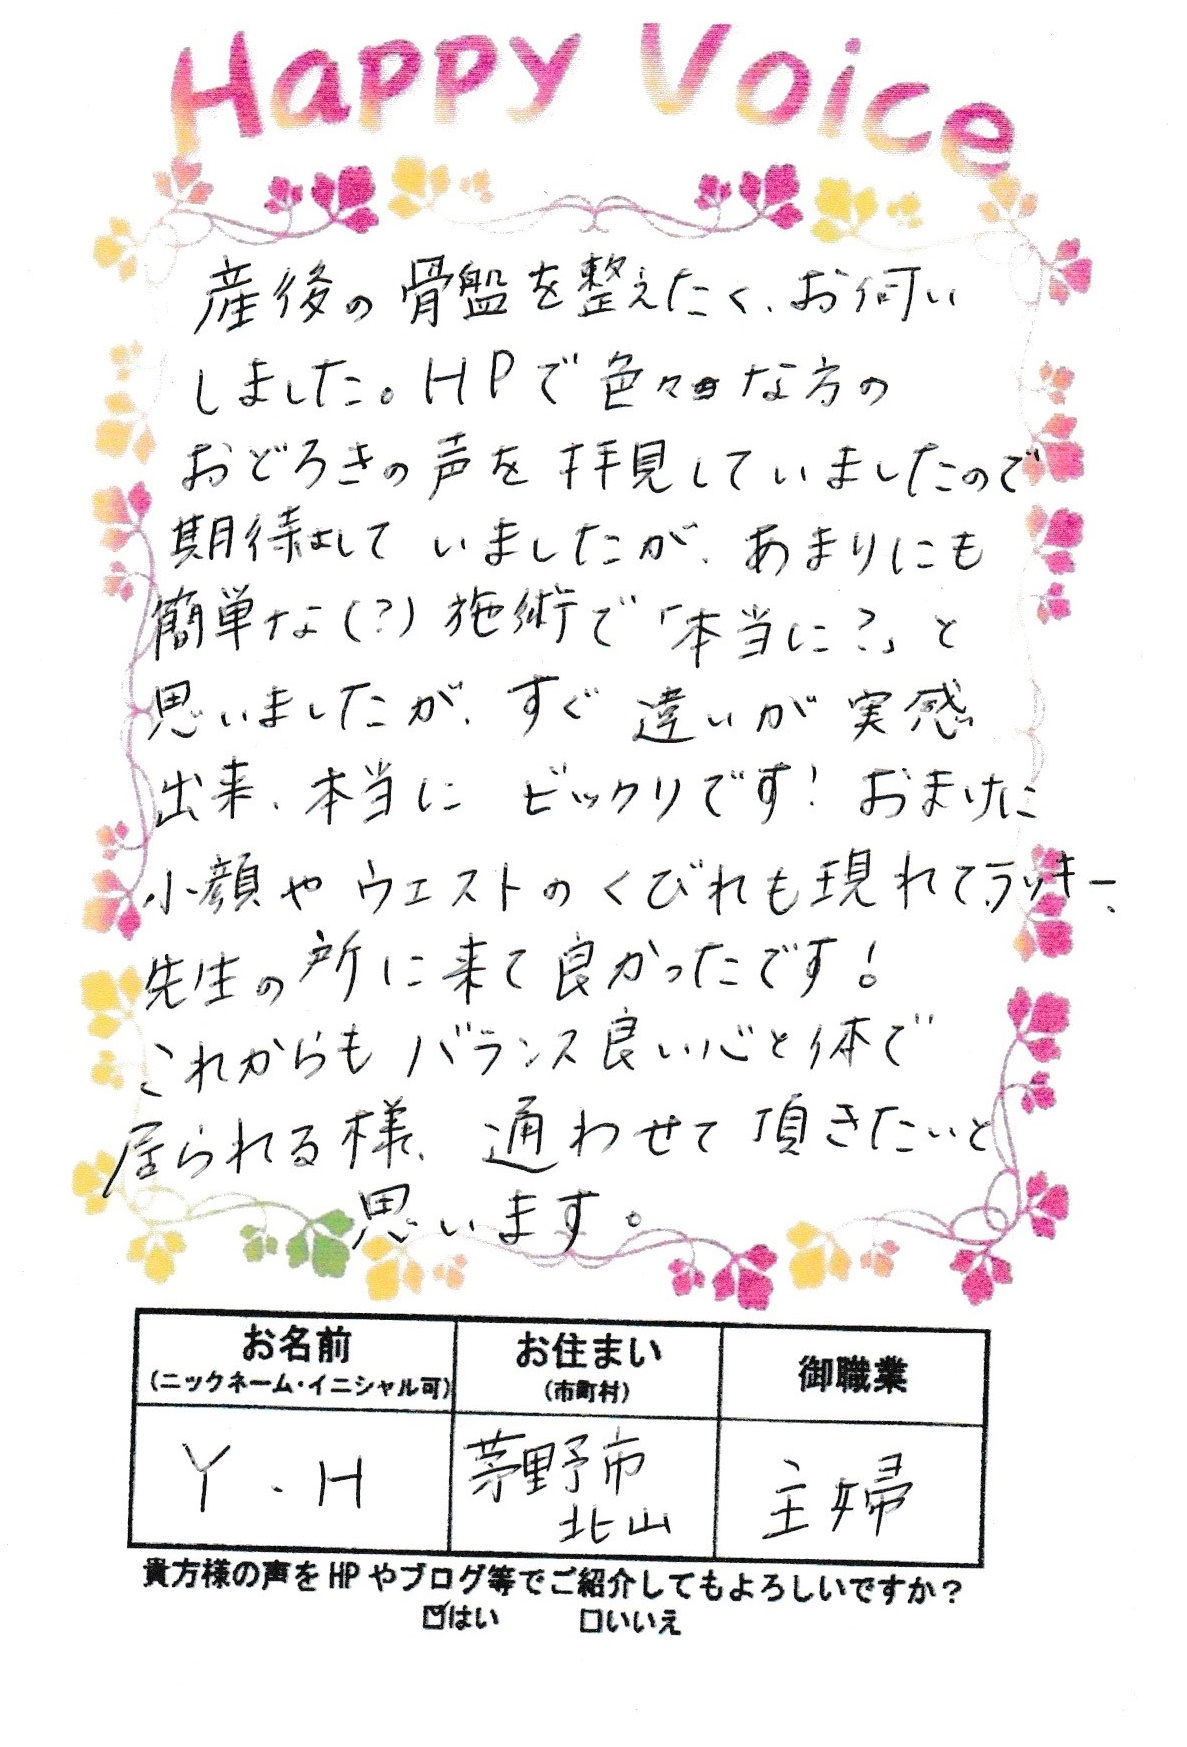 Happy Voice
産後の骨盤を整えたく、お伺い
しました。HPで色々な方の
おどろきの声を拝見していましたので
期待はして いましたが、あまりにも
簡単な(?)施術で「本当に?」と
思いましたが、すぐ違いが実感
出来、本当に ビックリです!おまけに
小顔やウエストのくびれも現れてラッキー、
先生の所に来て良かったです!
これからもバランス良い心と体で
居られる様、通わせて頂きたいと
思います。
お名前
(ニックネーム・イニシャル可)
お住まい
(市町村)
御職業
Y.H
茅野市
北山
主婦
貴方様の声をHPやブログ等でご紹介してもよろしいですか?
☑はい □いいえ